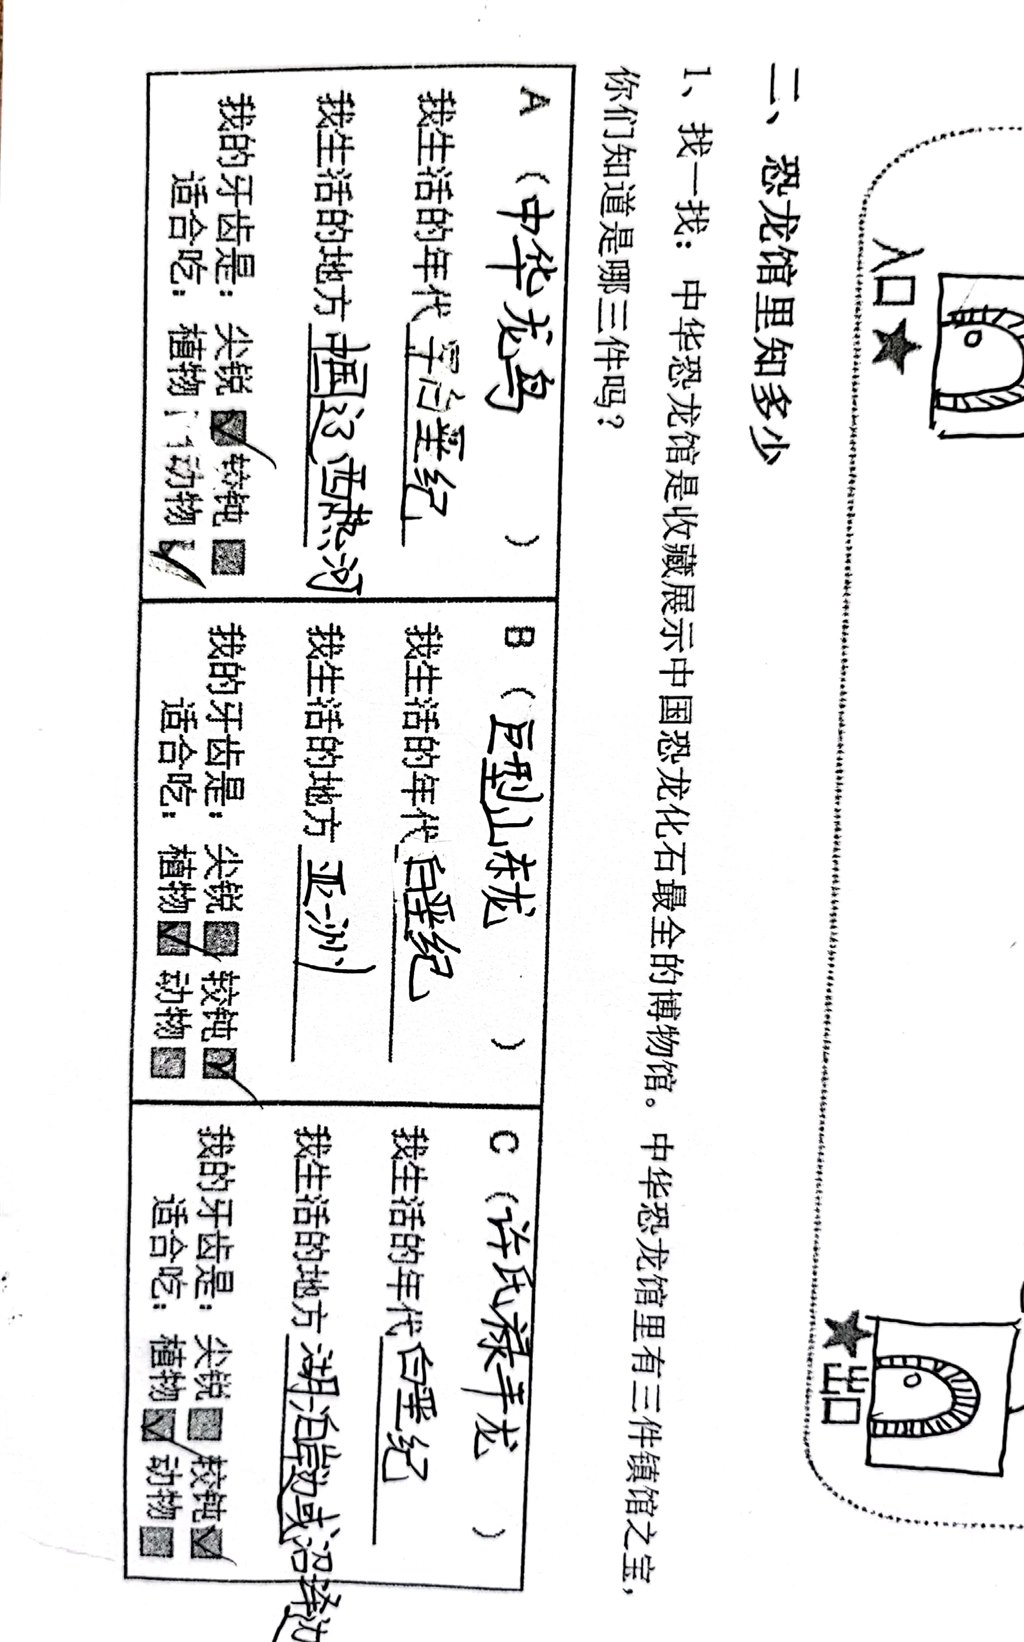 入口★
★出口
二、恐龙馆里知多少
1、找一找：中华恐龙馆是收藏展示中国恐龙化石最全的博物馆。中华恐龙馆里有三件镇馆之宝，
你们知道是哪三件吗？
A（中华龙鸟）
我生活的年代 早白垩纪
我生活的地方 中国辽西热河
我的牙齿是：尖锐☑较钝■
适合吃：植物 动物☑
B（巨型山东龙）
我生活的年代 白垩纪
我生活的地方 亚洲
我的牙齿是：尖锐■较钝☑
适合吃：植物☑动物■
C（许氏禄丰龙）
我生活的年代 白垩纪
我生活的地方 湖泊岸或沼泽边
我的牙齿是：尖锐■较钝☑
适合吃：植物☑动物■